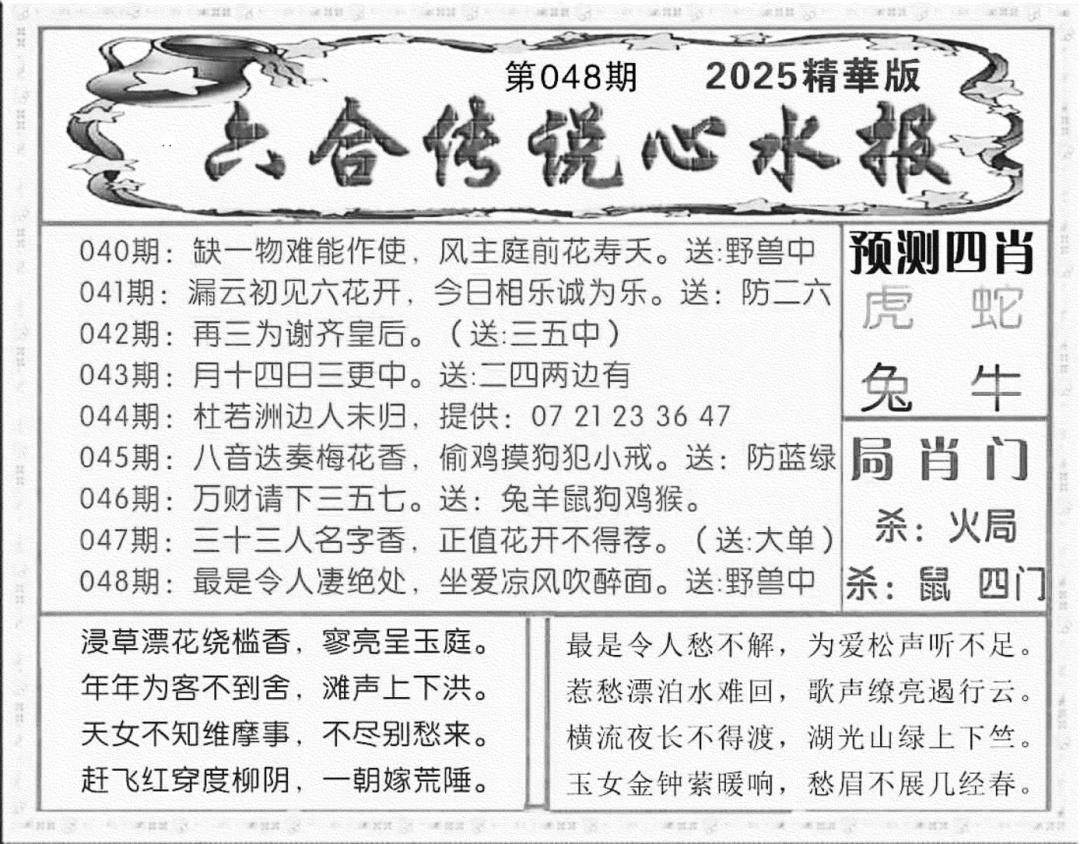 第048期 2025精華版
六合传说心水报
040期：缺一物难能作使，风主庭前花寿夭。送:野兽中
041期：漏云初见六花开，今日相乐诚为乐。送：防二六
042期：再三为谢齐皇后。（送:三五中）
043期：月十四日三更中。送:二四两边有
044期：杜若洲边人未归，提供：07 21 23 36 47
045期：八音迭奏梅花香，偷鸡摸狗犯小戒。送：防蓝绿
046期：万财请下三五七。送：兔羊鼠狗鸡猴。
047期：三十三人名字香，正值花开不得荐。（送:大单）
048期：最是令人凄绝处，坐爱凉风吹醉面。送:野兽中
预测四肖
虎 蛇
兔 牛
局肖门
杀：火局
杀：鼠 四门
浸草漂花绕槛香，寥亮呈玉庭。
年年为客不到舍，滩声上下洪。
天女不知维摩事，不尽别愁来。
赶飞红穿度柳阴，一朝嫁荒陲。
最是令人愁不解，为爱松声听不足。
惹愁漂泊水难回，歌声缭亮遏行云。
横流夜长不得渡，湖光山绿上下竺。
玉女金钟萦暖响，愁眉不展几经春。